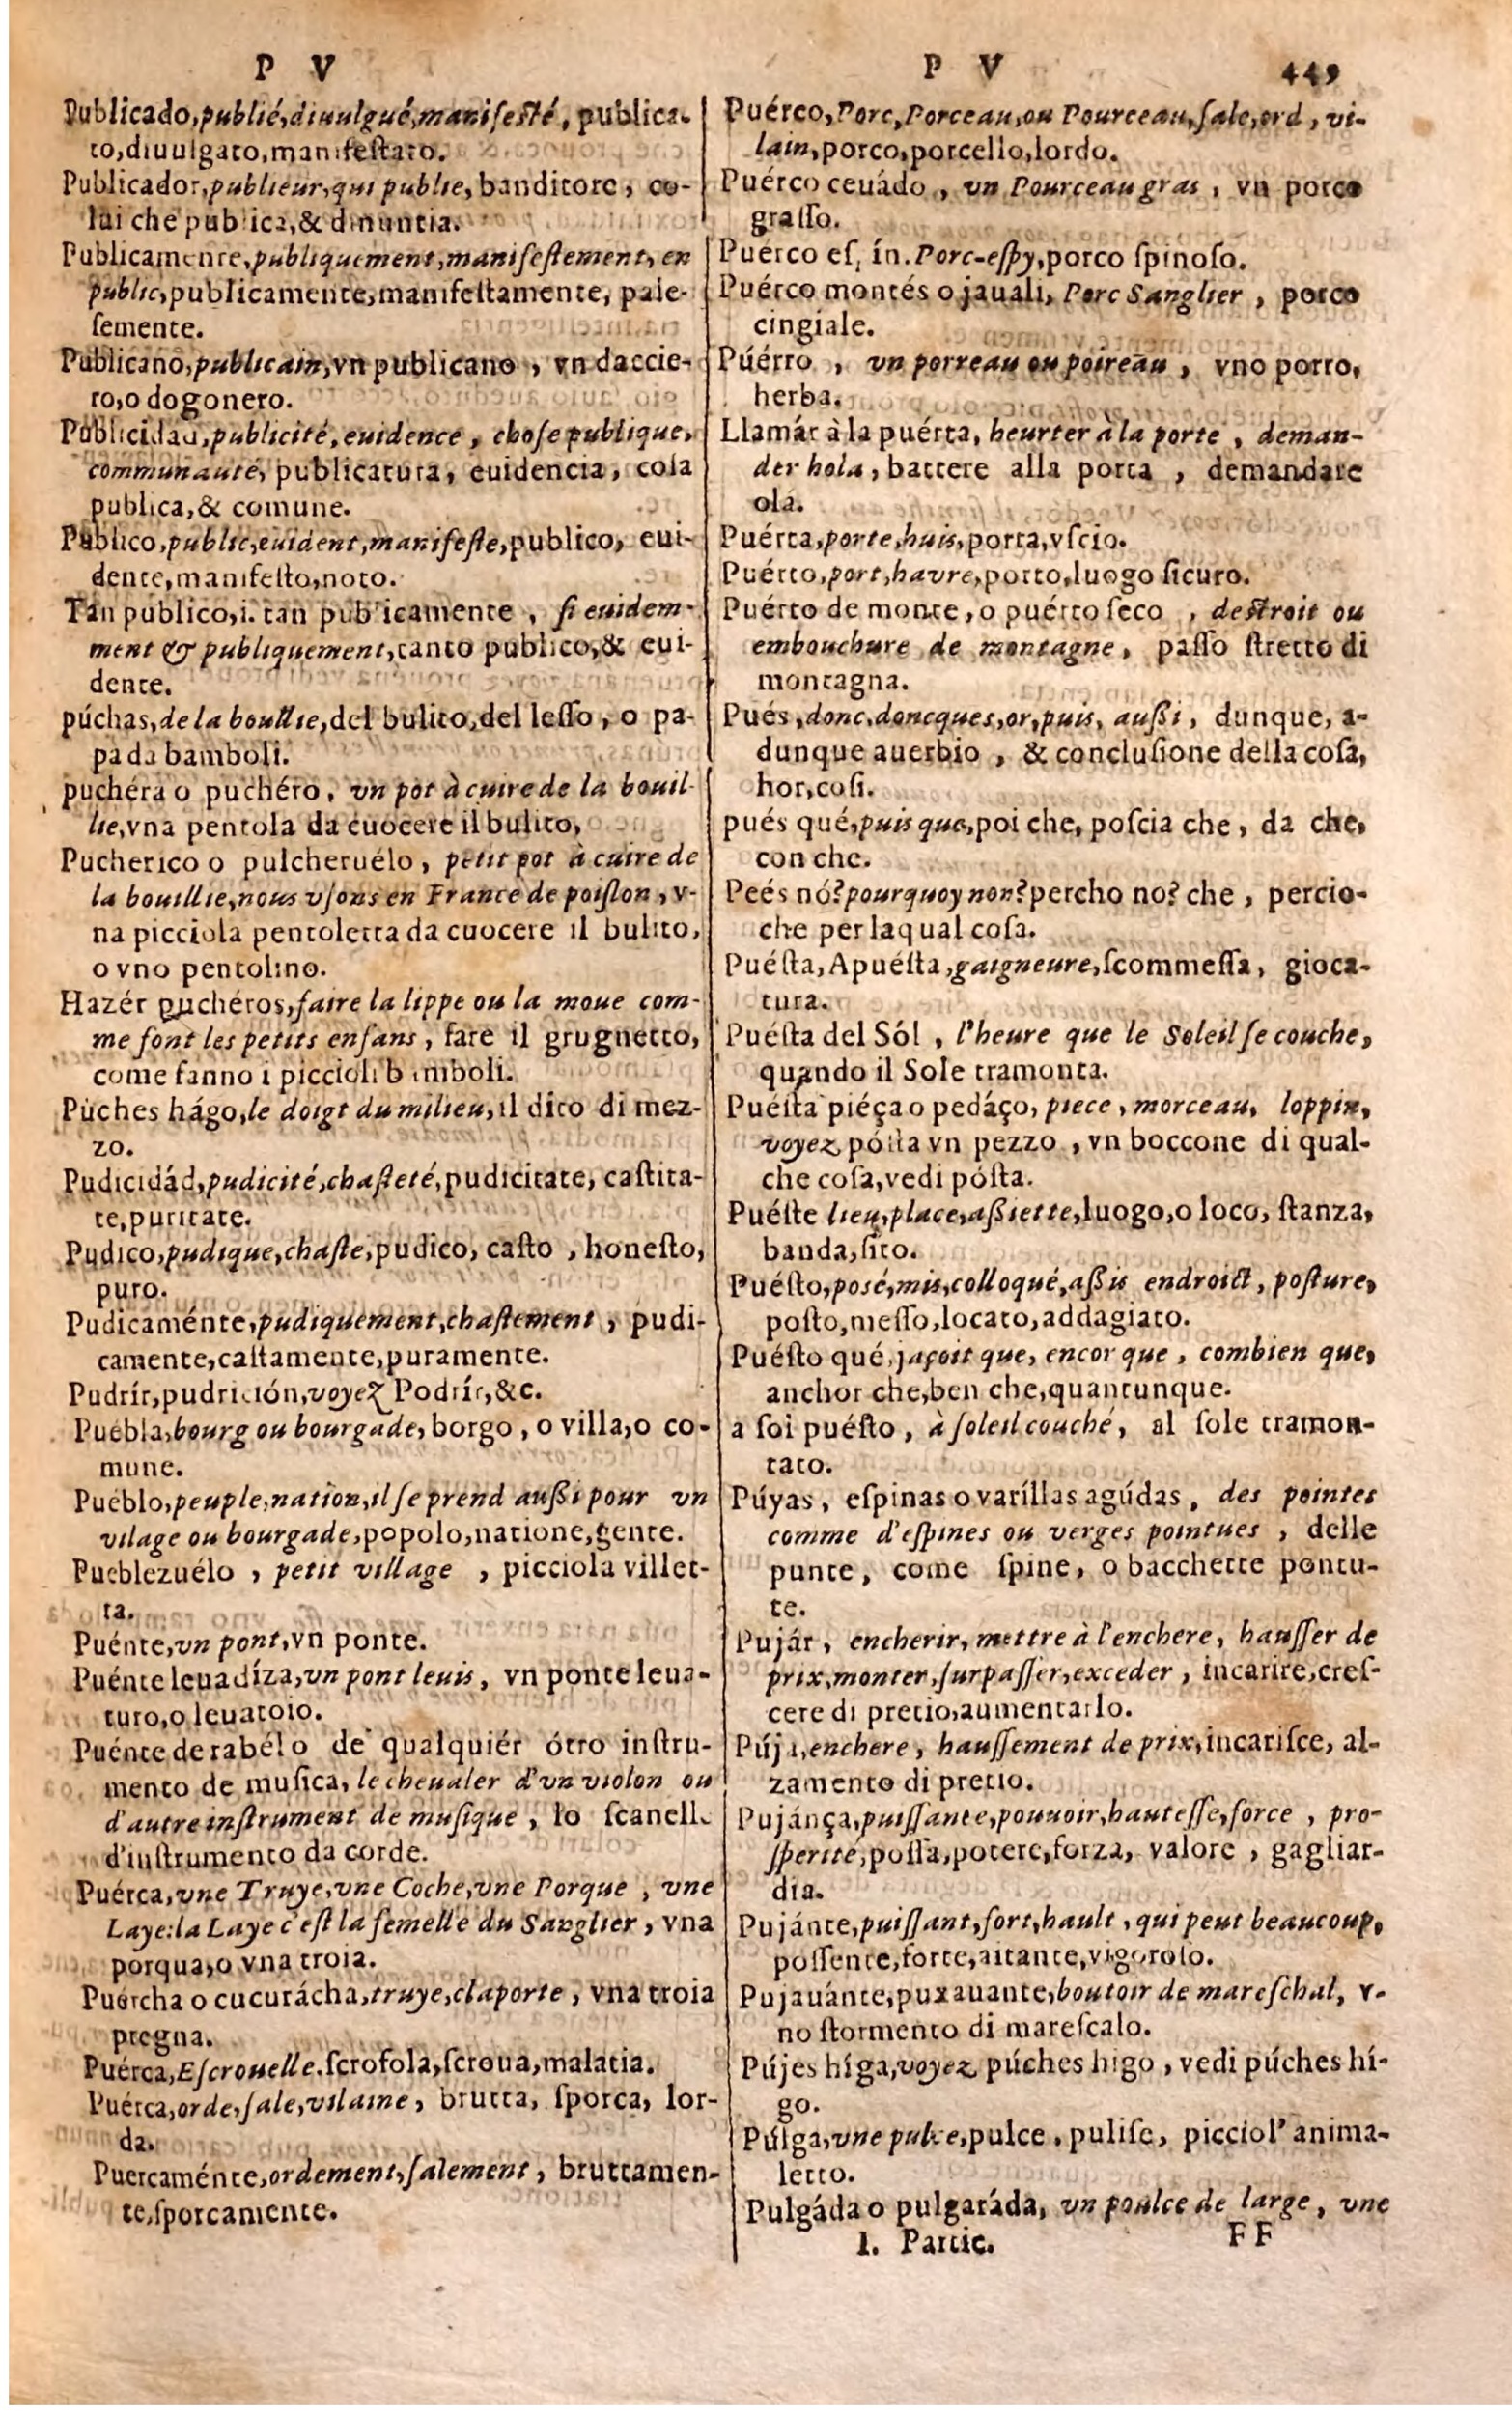 P V
Publicado, publié, diuulgué, manifesté, publica-
to, diuulgato, manifestato.
Publicador, publieur, qui publie, banditore, co-
lui che publica, & dinuntia.
Publicamente, publiquement, manifestement, en
public, publicamente, manifestamente, pale-
semente.
Publicano, publicain, vn publicano, vn daccie-
ro, o dogonero.
Publicidad, publicité, euidence, chose publique,
communauté, publicatura, euidencia, cosa
publica, & comune.
Publico, public, euident, manifeste, publico, eui-
dente, manifesto, noto.
Tan publico, i. tan publicamente, si euidem-
ment & publiquement, tanto publico, & eui-
dente.
púchas, de la boullie, del bulito, del lesso, o pa-
pa da bamboli.
puchéra o puchéro, vn pot à cuire de la bouil-
lie, vna pentola da cuocere il bulito,
Pucherico o pulcheruélo, petit pot à cuire de
la bouillie, nous vsons en France de poislon, v-
na picciola pentoletta da cuocere il bulito,
o vno pentolino.
Hazér puchéros, faire la lippe ou la moue com-
me font les petits enfans, fare il grugnetto,
come fanno i piccioli bamboli.
Pùches hágo, le doigt du milieu, il dito di mez-
zo.
Pudicidád, pudicité, chasteté, pudicitate, castita-
te, puritate.
Pudico, pudique, chaste, pudico, casto, honesto,
puro.
Pudicaménte, pudiquement, chastement, pudi-
camente, castamente, puramente.
Pudrír, pudrición, voyez Podrír, &c.
Puébla, bourg ou bourgade, borgo, o villa, o co-
mune.
Puéblo, peuple, nation, il se prend aussi pour vn
vilage ou bourgade, popolo, natione, gente.
Pueblezuélo, petit village, picciola villet-
ta.
Puénte, vn pont, vn ponte.
Puénte leuadíza, vn pont leuis, vn ponte leua-
turo, o leuatoio.
Puénte de rabél o de qualquiér ótro instru-
mento de musica, le cheualer d'vn violon ou
d'autre instrument de musique, lo scanello
d'instrumento da corde.
Puérca, vne Truye, vne Coche, vne Porque, vne
Laye: la Laye c'est la femelle du Sanglier, vna
porqua, o vna troia.
Puercha o cucurácha, truye, claporte, vna troia
pregna.
Puérca, Escrouelle. scrofola, scroua, malatia.
Puérca, orde, sale, vilaine, brutta, sporca, lor-
da.
Puercaménte, ordement, salement, bruttamen-
te, sporcamente.
P V 449
Puérco, Porc, Porceau, ou Pourceau, sale, ord, vi-
lain, porco, porcello, lordo.
Puérco ceuádo, vn Pourceau gras, vn porco
grasso.
Puérco es, ín. Porc-espy, porco spinoso.
Puérco montés o jauali, Porc Sanglier, porco
cingiale.
Púérro, vn porreau ou poireau, vno porro,
herba.
Llamár à la puérta, heurter à la porte, deman-
der hola, battere alla porta, demandare
ola.
Puérta, porte, huis, porta, vscio.
Puérto, port, havre, porto, luogo sicuro.
Puérto de monte, o puérto seco, destroit ou
embouchure de montagne, passo stretto di
montagna.
Pués, donc, doncques, or, puis, aussi, dunque, a-
dunque auerbio, & conclusione della cosa,
hor, cosi.
pués qué, puis que, poi che, poscia che, da che,
con che.
Peés nó? pourquoy non? percho no? che, percio-
che per laqual cosa.
Puésta, Apuésta, gaigneure, scommessa, gioca-
tura.
Puésta del Sól, l'heure que le Soleil se couche,
quando il Sole tramonta.
Puésta piéça o pedáço, piece, morceau, loppin,
voyez pósta vn pezzo, vn boccone di qual-
che cosa, vedi pósta.
Puéste lieu, place, assiette, luogo, o loco, stanza,
banda, sito.
Puésto, posé, mis, colloqué, assis endroict, posture,
posto, messo, locato, addagiato.
Puésto qué, jaçoit que, encor que, combien que,
anchor che, ben che, quantunque.
a sol puésto, à soleil couché, al sole tramon-
tato.
Púyas, espinas o varíllas agúdas, des pointes
comme d'espines ou verges pointues, delle
punte, come spine, o bacchette pontu-
te.
Pujár, encherir, mettre à l'enchere, hausser de
prix, monter, surpasser, exceder, incarire, cres-
cere di pretio, aumentarlo.
Púja, enchere, haussement de prix, incarisce, al-
zamento di pretio.
Pujánça, puissante, pouuoir, hautesse, force, pro-
sperité, possa, potere, forza, valore, gagliar-
dia.
Pujánte, puissant, fort, hault, qui peut beaucoup,
possente, forte, aitante, vigoroso.
Pujauánte, puxauante, boutoir de mareschal, v-
no stormento di marescalo.
Pújes híga, voyez púches higo, vedi púches hí-
go.
Púlga, vne pulce, pulce, pulise, picciol' anima-
letto.
Pulgáda o pulgaráda, vn poulce de large, vne
1. Partie. FF